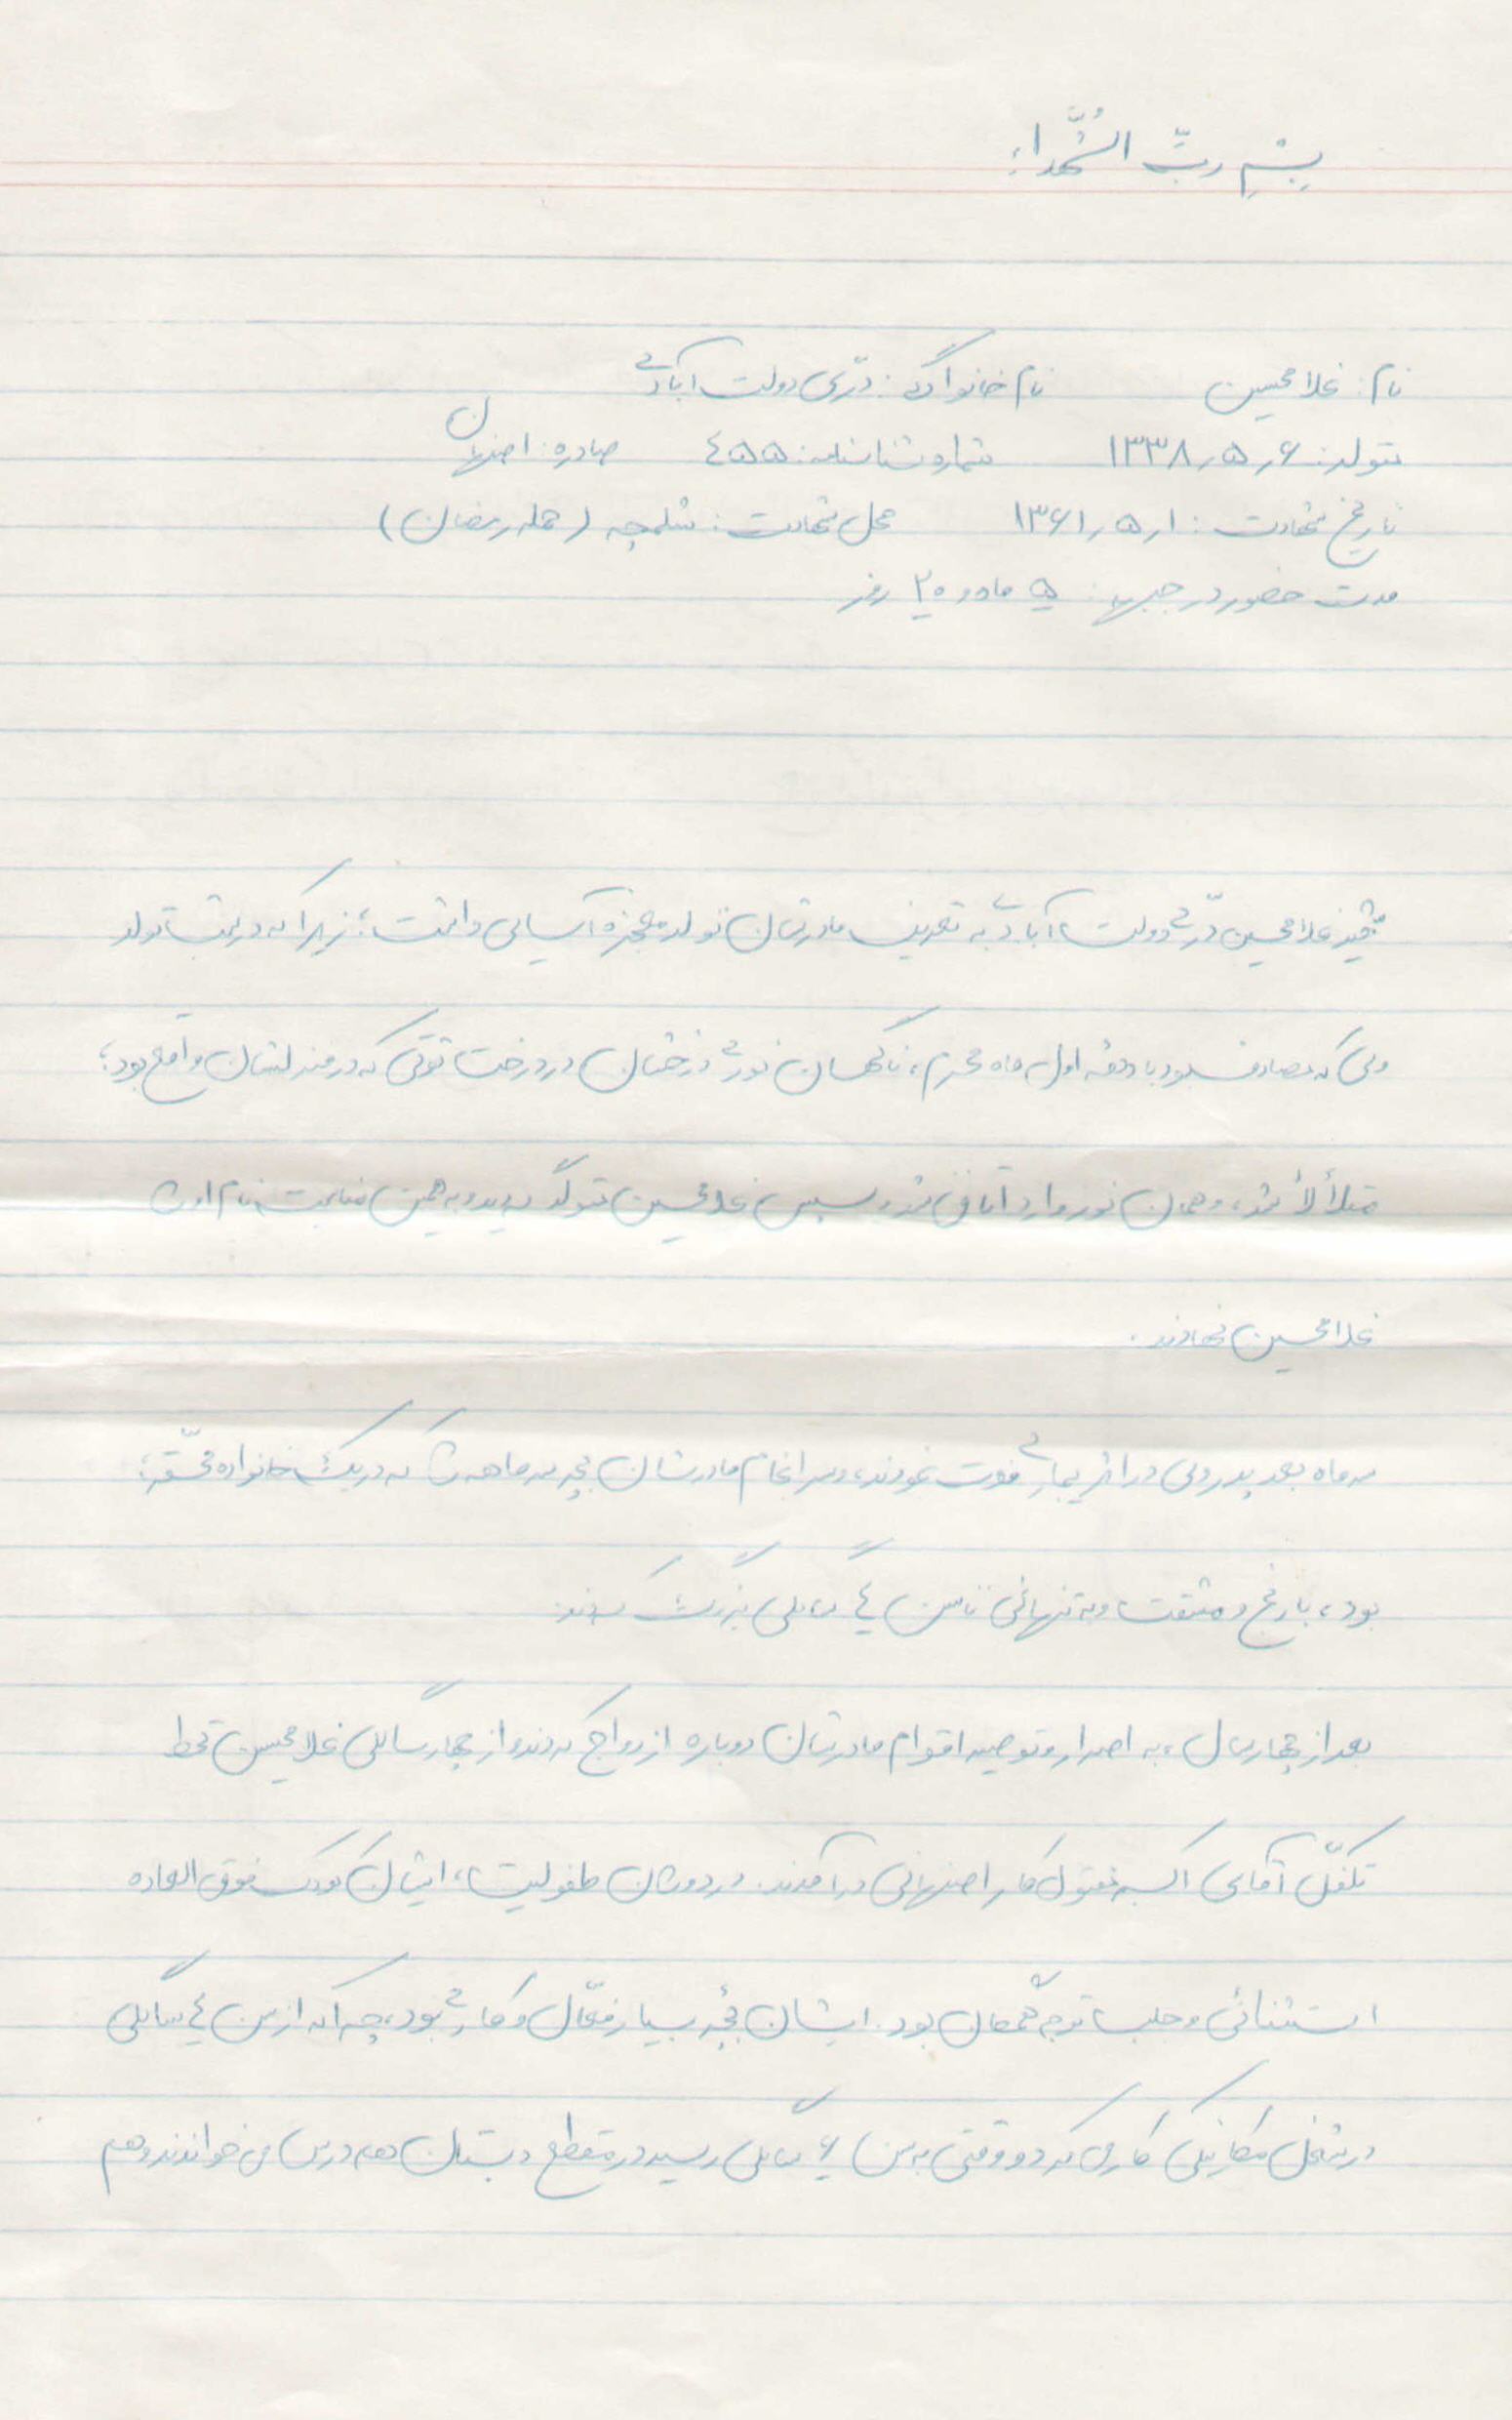 بِسْمِ ربِّ الشُّهداءِ
نام: غلامحسین نام خانوادگی: درّی دولت آبادی
متولد: ۱۳۳۸٫۵٫۶ شماره شناسنامه: ۴۵۵ صادره: اصفهان
تاریخ شهادت: ۱۳۶۱٫۵٫۱ محل شهادت: شلمچه (حمله رمضان)
مدت حضور در جبهه: ۵ ماه و ۲۰ روز
شهید غلامحسین درّی دولت آبادی به تعریف مادرشان تولد معجزه آسایی داشت؛ زیرا که در شب تولد
وی که مصادف بود با دهه اول ماه محرم، ناگهان نوری درخشان در درخت توتی که در منزلشان واقع بود؛
متلألأ شد، و همان نور وارد اتاق شد و سپس غلامحسین متولد گردید و به همین مناسبت نام او را
غلامحسین نهادند.
سه ماه بعد پدر وی در اثر بیماری فوت نمودند، و سرانجام مادرشان بچه سه ماهه را که در یک خانواده محقّر
بود، با رنج و مشقت و به تنهائی تا سن ۴ سالگی بزرگ کردند.
بعد از چهار سال، به اصرار و توصیه اقوام مادرشان دوباره ازدواج کردند و از چهار سالگی غلامحسین توسط
تکفّل آقای اکبر مفتول کار اصفهانی در آمدند. در دوران طفولیت، ایشان کودک فوق العاده
استثنائی و جلب توجه همگان بود. ایشان بچه بسیار فعّال و کاری بود، چرا که از سن ۴ سالگی
در شغل مکانیکی کار می کرد و وقتی به سن ۶ سالگی رسید در مقطع دبستان هم درس می خواندند و هم